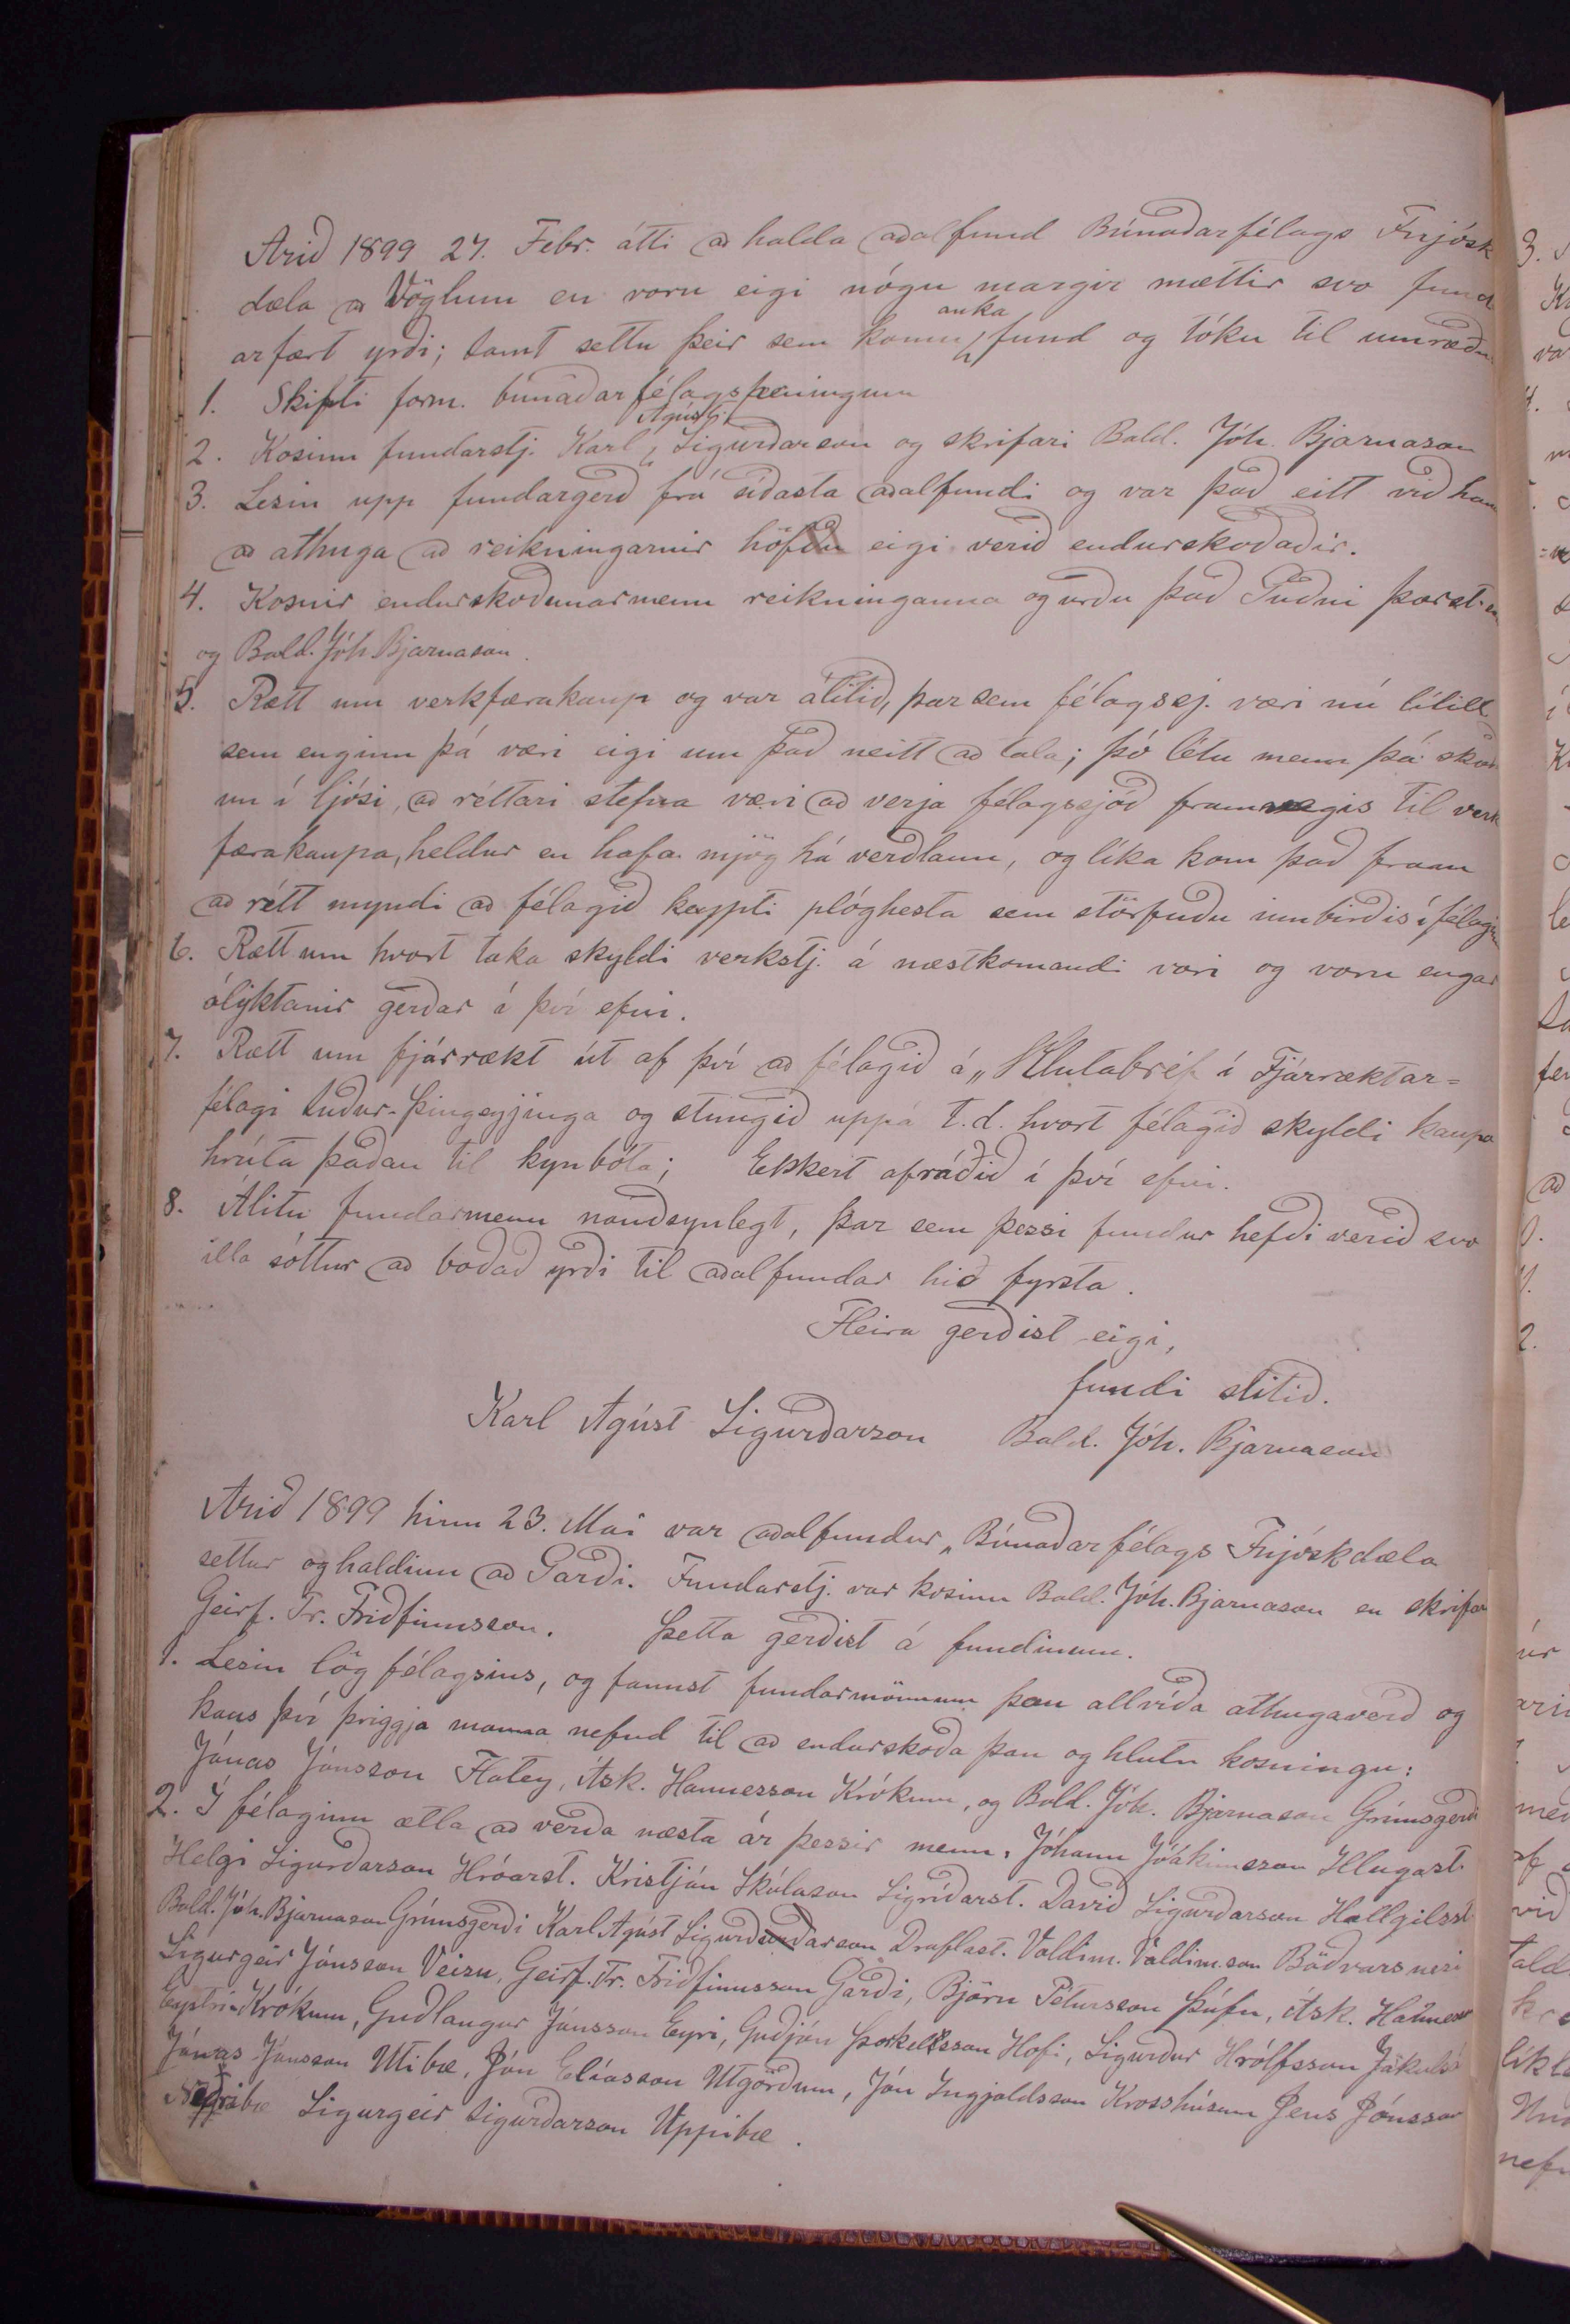 Arið 1899 27. Febr. átti að halda aðalfund Búnaðarfélags Fnjósk
dæla að Vöglum en voru eigi nógu margir mættir svo fund
arfært yrði; samt settu þeir sem komu auka fund og tóku til umræðu
1. Skifti form. búnaðarfélagspeningum
2. Kosinn fundarstj. Karl Ágúst Sigurðarson og skrifari Bald. Jóh. Bjarnason
3. Lesin upp fundargerð frá síðasta aðalfundi og var það eitt við han
að athuga að reikningarnir höfðu eigi verið endurskoðaðir.
4. Kosnir endurskoðunarmenn reikninganna og urðu það Guðni Þorst.
og Bald. Jóh Bjarnason.
5. Rætt um verkfærakaup og var álitið, þar sem félagssj. væri nú lítill
sem enginn þá væri eigi um það neitt að tala; þó létu menn þá skoð
un í ljósi, að réttari stefna væri að verja félagssjóð framvegis til verk
færakaupa, heldur en hafa mjög há verðlaun, og líka kom það fram
að rétt myndi að félagið keypti plóghesta sem störfuðu innbirðis í félagi
6. Rætt um hvort taka skyldi verkstj. á næstkomandi vori og voru engar
ályktanir gerðar í því efni.
7. Rætt um fjárrækt út af því að félagið á „Hlutabréf í Fjárræktar=
félagi Suður-Þingeyjinga og stungið uppá t.d. hvort félagið skyldi kaupa
hrúta þaðan til kynbóta; Ekkert afráðið í því efni.
8. Álitu fundarmenn nauðsynlegt, þar sem þessi fundur hefði verið svo
illa sóttur að boðað yrði til aðalfundar hið fyrsta.
Fleira gerðist eigi,
fundi slitið.
Karl Ágúst Sigurðarson Bald. Jóh. Bjarnason
Arið 1899 hinn 23. Mai var aðalfundur „Búnaðarfélags Fnjóskdæla
settur og haldinn að Garði. Fundarstj. var kosinn Bald. Jóh. Bjarnason en skrifar
Geirf. Tr. Friðfinnsson. Þetta gerðist á fundinum.
1. Lesin lög félagsins, og fannst fundarmönnum þau allvíða athugaverð og
kaus því þriggja manna nefnd til að endurskoða þau og hlutu kosningu:
Jónas Jónsson Flatey, Ásk. Hannesson Krókum, og Bald. Jóh. Bjarnason Grímsgerði
2. Í félaginu ætla að verða næsta ár þessir menn, Jóhann Jóakimsson Illugast.
Helgi Sigurðarson Hróarst. Kristján Skúlason Sigríðarst. Davíð Sigurðarson Hallgilsst
Bald. Jóh. Bjarnason Grímsgerði Karl Ágúst Sigurðarson Draflast. Valdim. Valdim.son Böðvarsnesi
Sigurgeir Jónsson Veisu, Geirf. Tr. Friðfinnsson Garði, Björn Pétursson Þúfu, Ásk. Hannes
Eystri-Krókum, Guðlaugur Jónsson Eyri, Guðjón Þorkelsson Hofi, Sigurður Hrólfsson Jökuls
Jónas Jónsson Útibæ, Jón Elíasson Útgörðum, Jón Ingjaldsson Krosshúsum Jens Jónsson
Neðribæ Sigurgeir Sigurðarson Uppibæ.